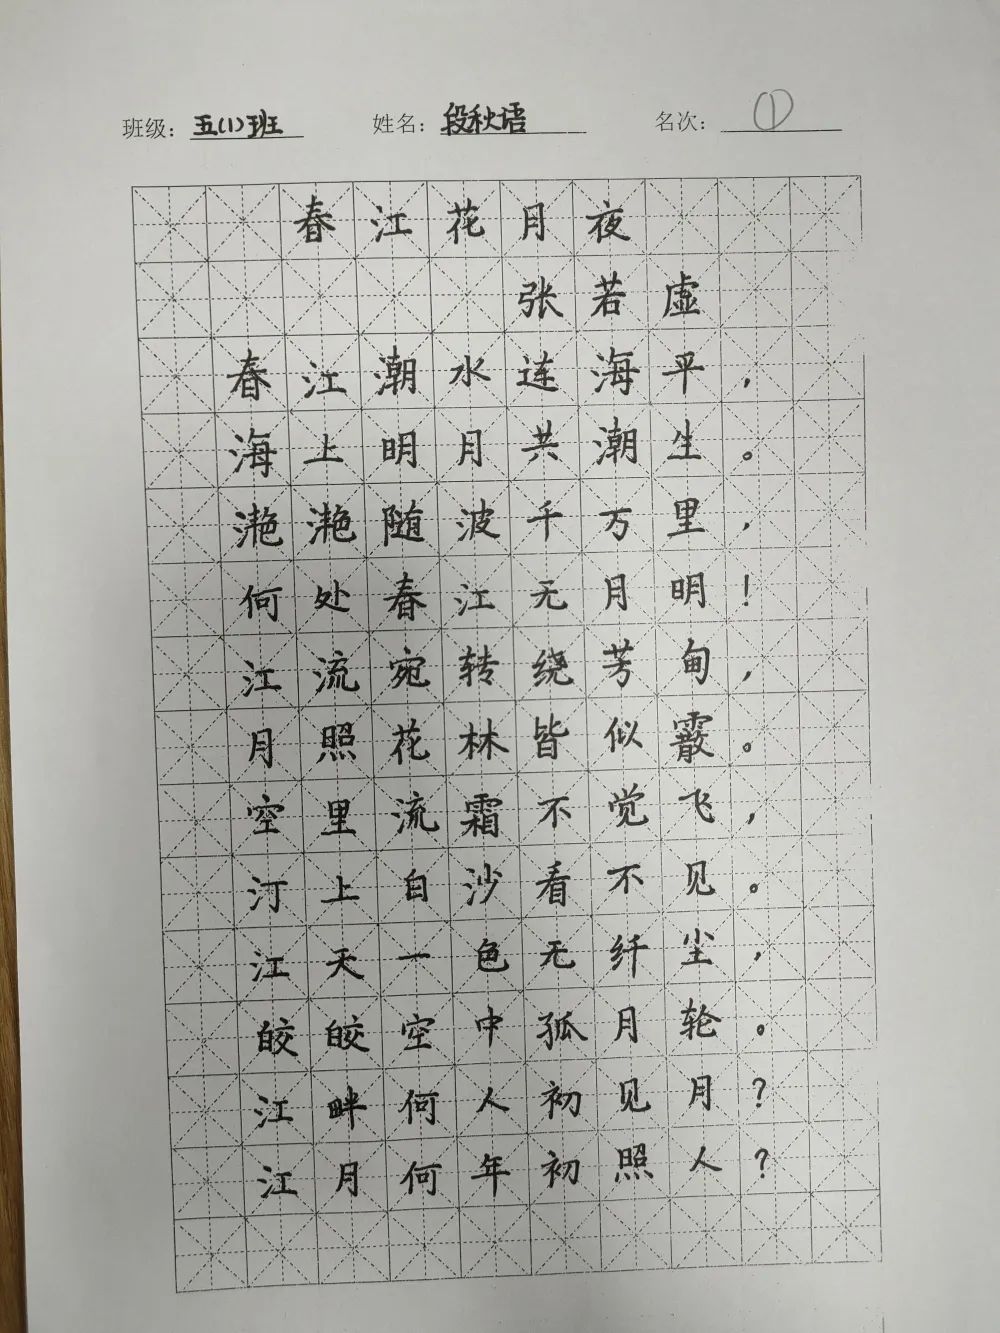 班级：五(1)班 姓名：段秋语 名次：①
春江花月夜
张若虚
春江潮水连海平，
海上明月共潮生。
滟滟随波千万里，
何处春江无月明！
江流宛转绕芳甸，
月照花林皆似霰。
空里流霜不觉飞，
汀上白沙看不见。
江天一色无纤尘，
皎皎空中孤月轮。
江畔何人初见月？
江月何年初照人？